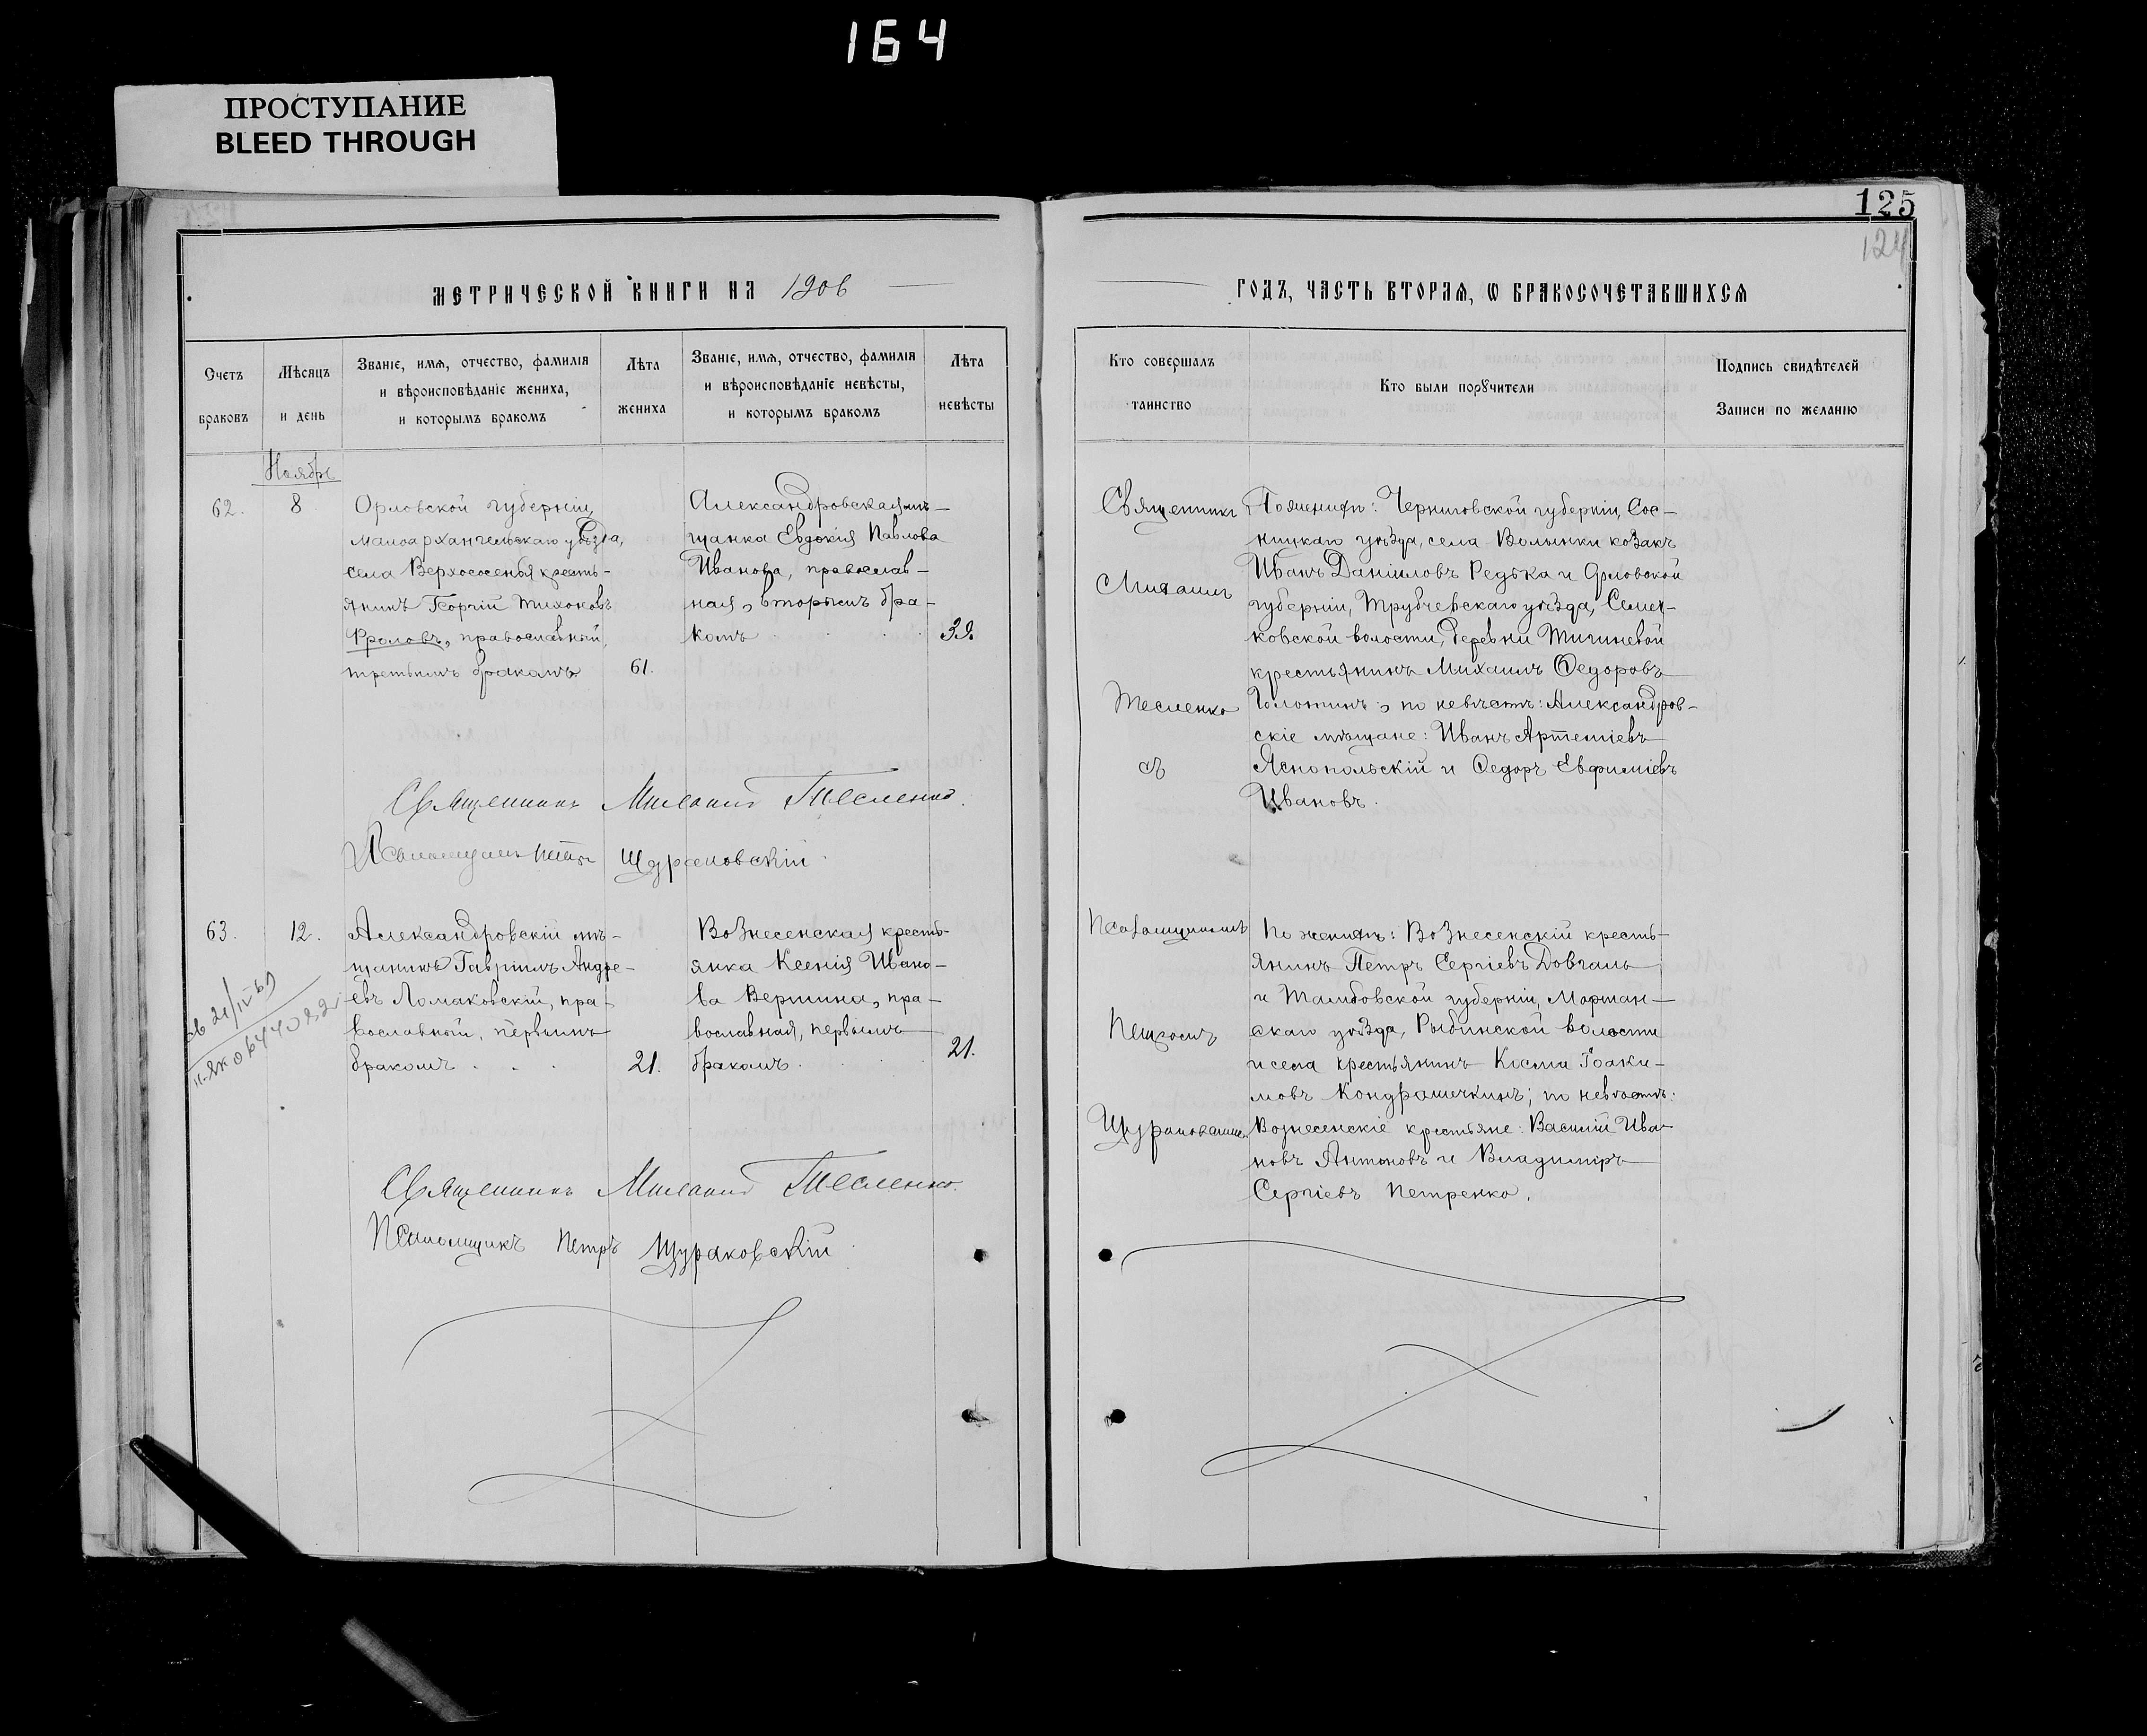 164
ПРОСТУПАНИЕ
BLEED THROUGH
125
124
МЕТРИЧЕСКОЙ КНИГИ НА 1906
ГОДЪ, ЧАСТЬ ВТОРАЯ, Ѡ БРАКОСОЧЕТАВШИХСЯ
Счетъ браковъ
Мѣсяцъ и день
Званіе, имя, отчество, фамилія
и вѣроисповѣданіе жениха,
и которымъ бракомъ
Лѣта жениха
Званіе, имя, отчество, фамилія
и вѣроисповѣданіе невѣсты,
и которымъ бракомъ
Лѣта невѣсты
Кто совершалъ таинство
Кто были порꙋчители
Подпись свидѣтелей
Записи по желанію
Ноябрь
62.
8
Орловской губерніи,
Малоархангельскаго уѣзда,
села Верхососенья кресть-
янинъ Георгій Тихоновъ
Фроловъ, православный,
третьимъ бракомъ
61.
Александровская мѣ-
щанка Евдокія Павлова
Иванова, православ-
ная, вторымъ бра-
комъ
39.
Священникъ
Михаилъ
Тесленко
съ
По женихѣ: Черниговской губерніи, Сос-
ницкаго уѣзда, села Волынки козакъ
Иванъ Даніиловъ Редька и Орловской
губерніи, Трубчевскаго уѣзда, Семец-
ковской волости, деревни Тигиневой
крестьянинъ Михаилъ Ѳедоровъ
Голотинъ; по невѣстѣ: Александров-
скіе мѣщане: Иванъ Артеміевъ
Яснопольскій и Ѳедоръ Евфиміевъ
Ивановъ.
Священникъ Михаилъ Тесленко.
Псаломщикъ Петръ Щураковскій.
63.
12.
Александровскій мѣ-
щанинъ Гавріилъ Андре-
евъ Ломаковскій, пра-
вославный, первымъ
бракомъ
21.
Вознесенская кресть-
янка Ксенія Ивано-
ва Вершина, пра-
вославная, первымъ
бракомъ
21.
Псаломщикомъ
Петромъ
Щураковскимъ
По женихѣ: Вознесенскій кресть-
янинъ Петръ Сергіевъ Довгаль
и Тамбовской губерніи, Моршан-
скаго уѣзда, Рыбинской волости
и села крестьянинъ Косма Іоаки-
мовъ Кондрашечкинъ; по невѣстѣ:
Вознесенскіе крестьяне: Василій Ива-
новъ Антоновъ и Владиміръ
Сергіевъ Петренко.
Священникъ Михаилъ Тесленко.
Псаломщикъ Петръ Щураковскій